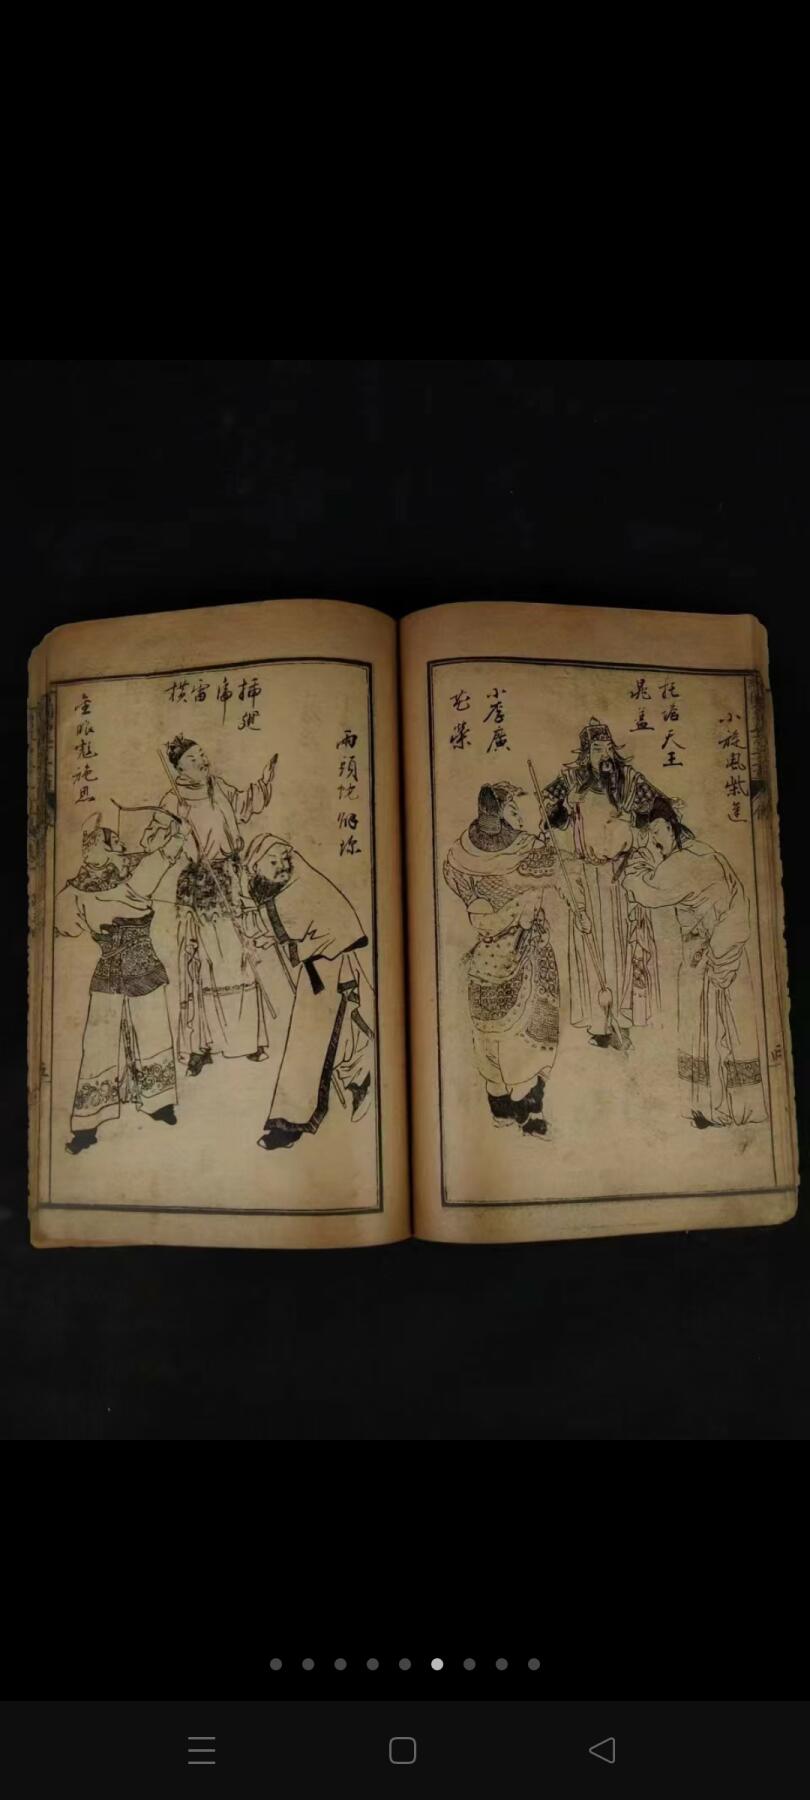 小旋風柴進
托塔天王
晁盖
小李廣
花榮
兩頭蛇解珍
插翅虎雷横
金眼彪施恩